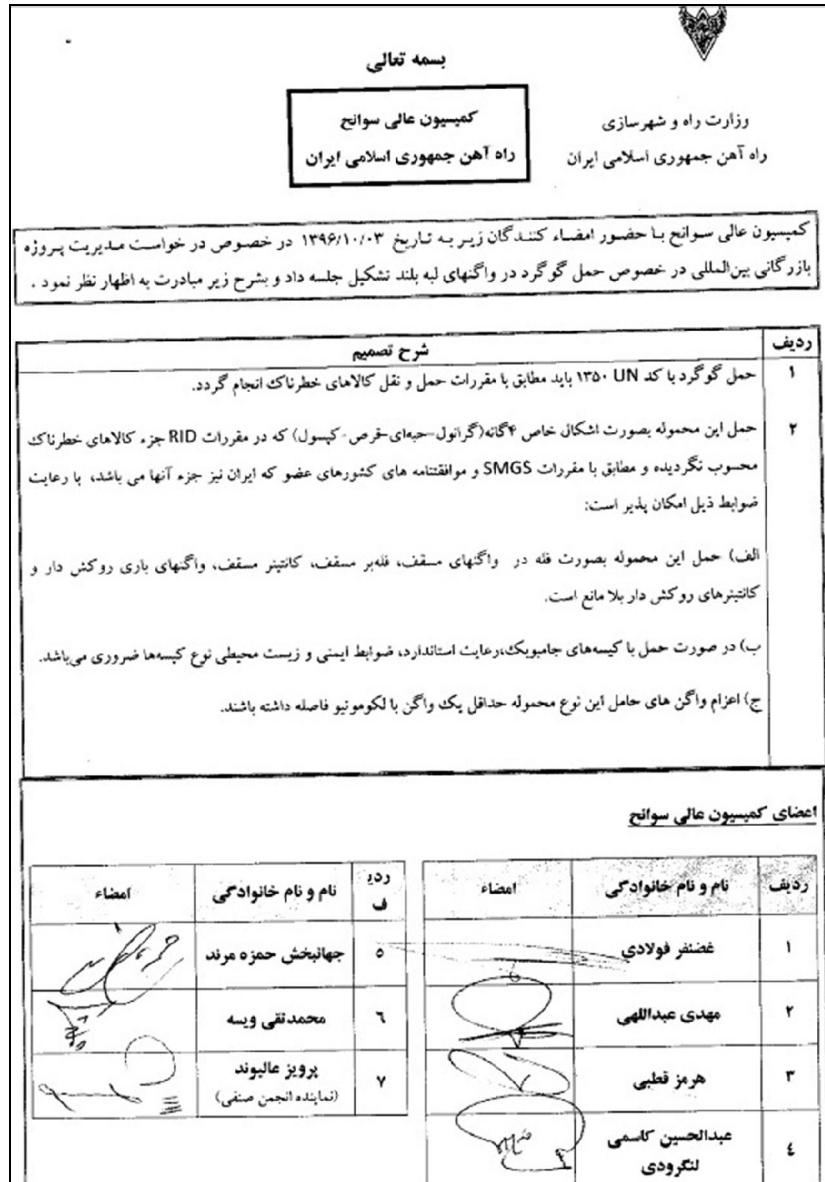 بسمه تعالی
کمیسیون عالی سوانح
راه آهن جمهوری اسلامی ایران
وزارت راه و شهرسازی
راه آهن جمهوری اسلامی ایران
کمیسیون عالی سوانح با حضور امضاء کنندگان زیر به تاریخ ۱۳۹۶/۱۰/۰۳ در خصوص در خواست مدیریت پروژه
بازرگانی بین‌المللی در خصوص حمل گوگرد در واگنهای لبه بلند تشکیل جلسه داد و بشرح زیر مبادرت به اظهار نظر نمود .
ردیف شرح تصمیم
۱ حمل گوگرد با کد UN ۱۳۵۰ باید مطابق با مقررات حمل و نقل کالاهای خطرناک انجام گردد.
۲ حمل این محموله بصورت اشکال خاص ۴گانه(گرانول-حبه‌ای-قرص-کپسول) که در مقررات RID جزء کالاهای خطرناک
محسوب نگردیده و مطابق با مقررات SMGS و موافقتنامه های کشورهای عضو که ایران نیز جزء آنها می باشد، با رعایت
ضوابط ذیل امکان پذیر است:
الف) حمل این محموله بصورت فله در واگنهای مسقف، فله‌بر مسقف، کانتینر مسقف، واگنهای باری روکش دار و
کانتینرهای روکش دار بلا مانع است.
ب) در صورت حمل با کیسه‌های جامبوبک،رعایت استاندارد، ضوابط ایمنی و زیست محیطی نوع کیسه‌ها ضروری می‌باشد.
ج) اعزام واگن های حامل این نوع محموله حداقل یک واگن با لکوموتیو فاصله داشته باشند.
اعضای کمیسیون عالی سوانح
ردیف نام و نام خانوادگی امضاء
۱ غضنفر فولادی
۲ مهدی عبداللهی
۳ هرمز قطبی
٤ عبدالحسین کاسمی
لنگرودی
ردیف نام و نام خانوادگی امضاء
٥ جهانبخش حمزه مرند
٦ محمدتقی ویسه
۷ پرویز عالیوند
(نماینده انجمن صنفی)